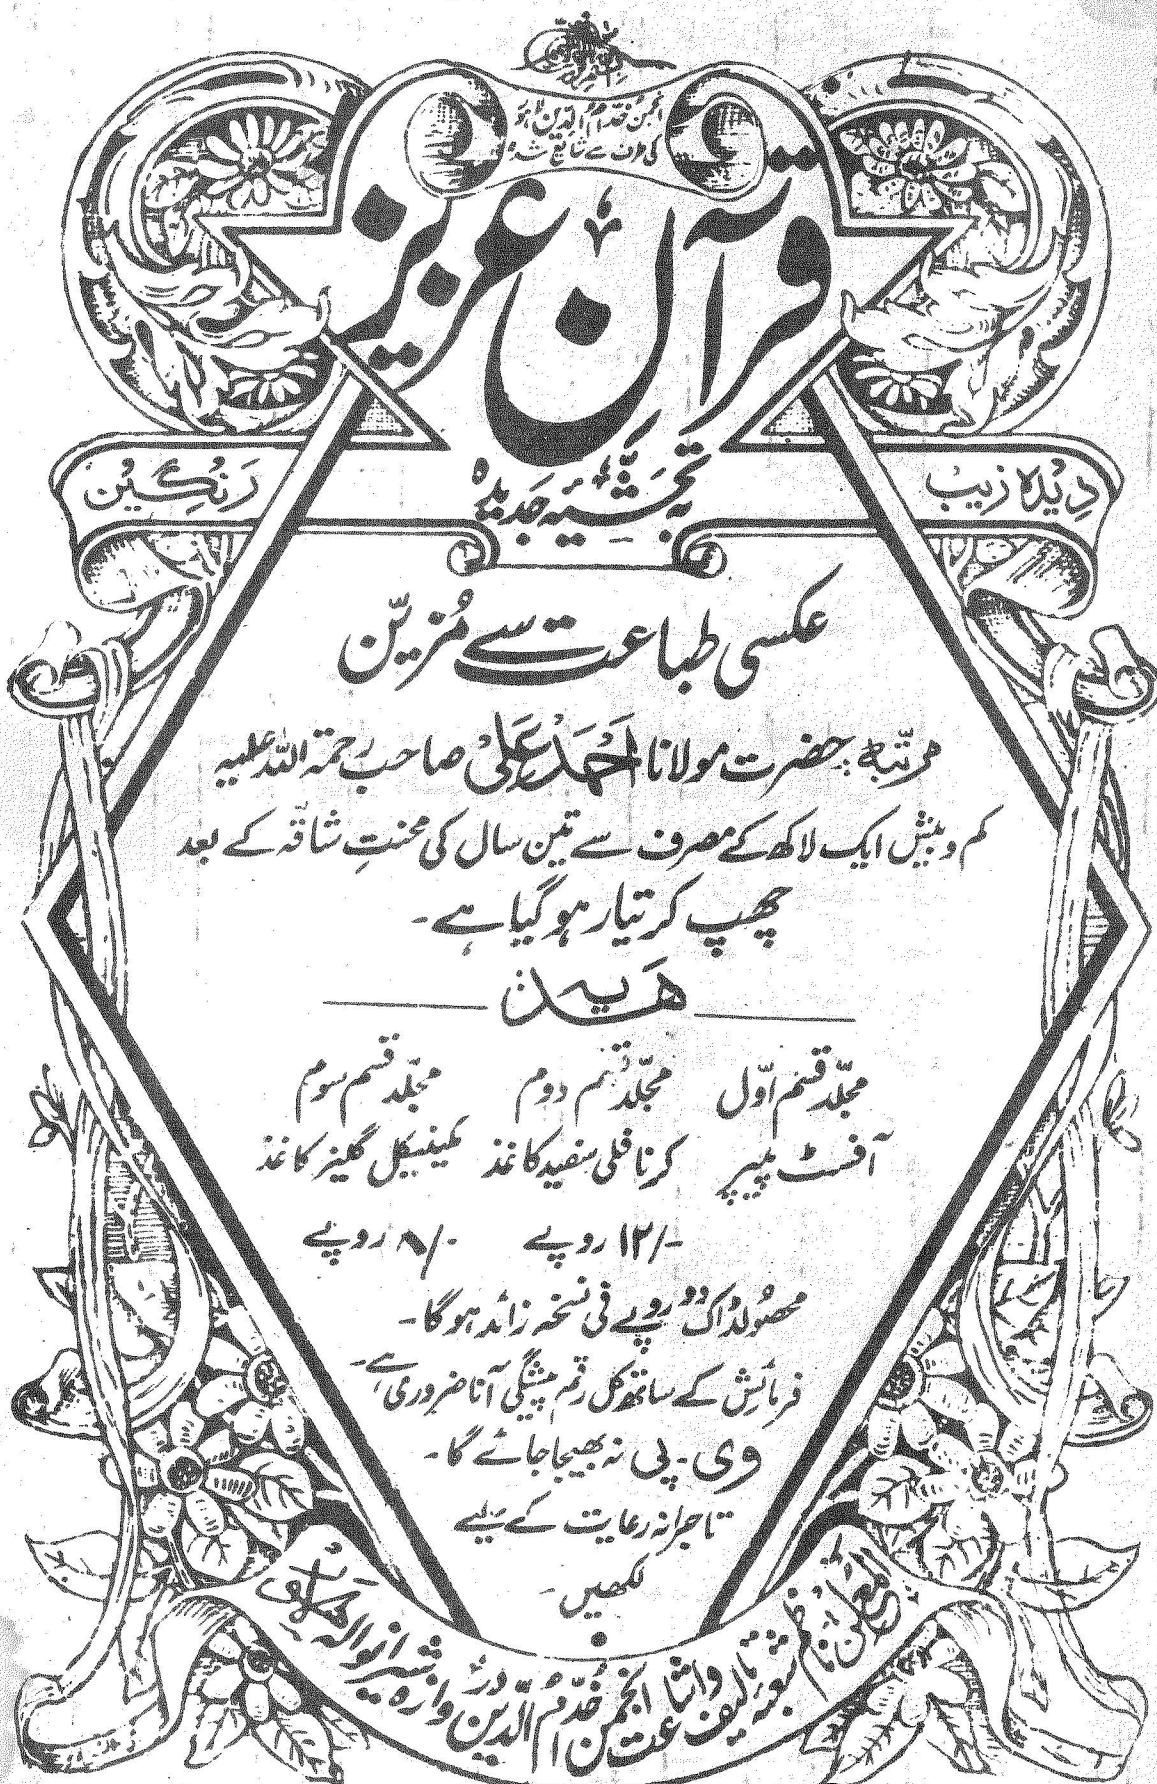 انجمن خدّام الدّین لاہور
کی طرف سے شائع شدہ
قرآن عزیز
دیدہ زیب
بہ تحشیۂ جدیدہ
رنگین
عکسی طباعت سے مُزیّن
مرتّبہ: حضرت مولانا احمد علی صاحب رحمۃ اللہ علیہ
کم و بیش ایک لاکھ کے مصرف سے تین سال کی محنتِ شاقّہ کے بعد
چھپ کر تیار ہو گیا ہے۔
ھدیہ
مجلّد قسم اوّل
مجلّد قسم دوم
مجلّد قسم سوم
آفسٹ پیپر
کرنافلی سفید کاغذ
کیمیکل گلیز کاغذ
۱۲/- روپے
۸/- روپے
محصولڈاک دو روپے فی نسخہ زائد ہوگا۔
فرمائش کے ساتھ کل رقم پیشگی آنا ضروری ہے۔
وی۔ پی نہ بھیجا جائے گا۔
تاجرانہ رعایت کے لیے
لکھیں۔
المعلن: ناظم شعبہ تالیف و اشاعت انجمن خدّام الدّین دروازہ شیرانوالہ